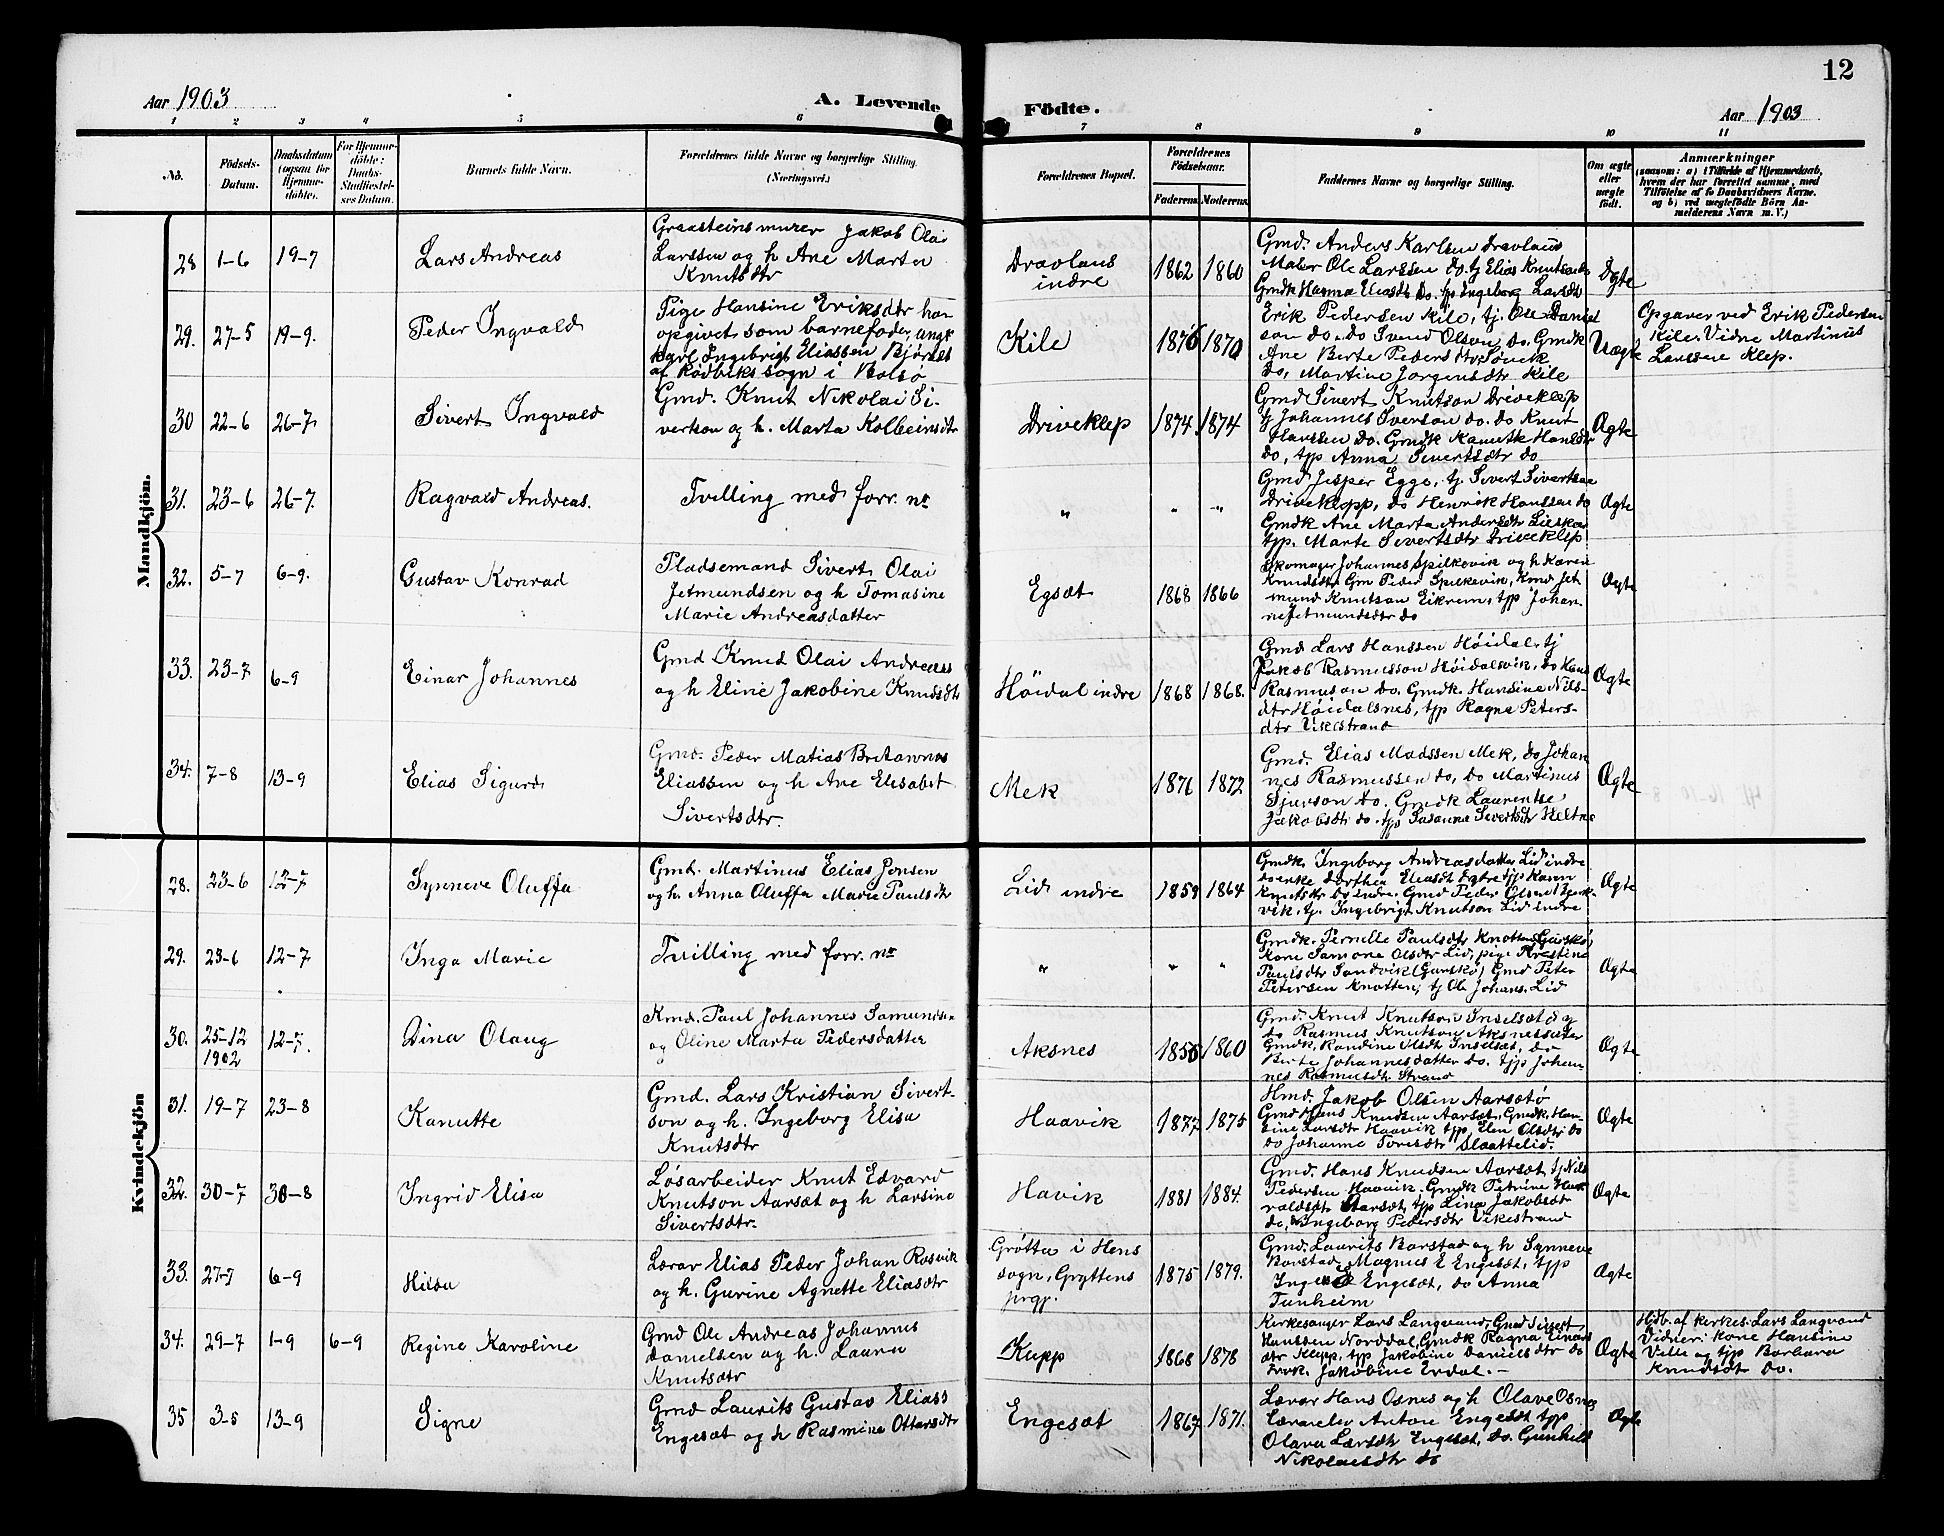 12
Aar 1903
A. Levende Födte.
Aar 1903
1 2 3 4 5 6 7 8 9 10 11
No.
Födsels-
Datum.
Daabsdatum
(ogsaa for
Hjemme-
döbte).
For Hjemme-
döbte:
Daabs-
Stadfæstel-
ses Datum.
Barnets fulde Navn.
Forældrenes fulde Navne og borgerlige Stilling.
(Næringsvei.)
Forældrenes Bopæl.
Forældrenes
Födselsaar.
Faderens. Moderens.
Faddernes Navne og borgerlige Stilling.
Om ægte
eller
uægte
födt.
Anmærkninger
(saasom: a) i Tilfælde af Hjemmedaab,
hvem der har forrettet samme, med
Tilföielse af to Daabsvidners Navne.
og b) ved uægtefödte Börn An-
melderens Navn m. V.)
Mandkjön.
28 1-6 19-7
Lars Andreas
Graasteinsmurer Jakob Olai
Larssen og h Ane Marta
Knutsdtr
Dravlaus
indre
1862 1860
Gmd. Anders Karlsen Dravlaus
Maler Ole Larssen do. tj Elias Knutsen do
Gmdk Hanna Eliasdt do. tp Ingeborg Larsdtr
Ægte
29. 27-5 19-9.
Peder Ingvald
Pige Hansine Eriksdtr har
opgivet som barnefader, ungk
Karl Ingebrigt Eliassen Bjørset
af Rødbeks sogn i Bolsø
Kile
1876 1870
Erik Pedersen Kile, tj. Ole Daniel
son do. do Svend Olson do. Gmdk
Ane Berte Pedersdtr
do, Martine Jørgensdtr Kile
Uægte
Opgaver ved Erik Pedersen
Kile. Vidne Martinus
Larssen Klep.
30 22-6 26-7.
Sivert Ingvald
Gmd. Knut Nikolai Si-
vertson og h. Marta Kolbeinsdtr
Driveklep
1874. 1874
Gmd Sivert Knutson Driveklep
tj Johannes Sverson do. do Knut
Hanssen do. Gmdk Kanutte Hansdtr
do, tjp Anna Sivertsdtr do
Ægte
31. 23-6 26-7.
Ragvald Andreas.
Tvilling med forr. nr
" " "
Gmd Jesper Egge, tj. Sivert Sivertsen
Driveklepp, do Henrik Hanssen do
Gmdk Ane Marta Andersdtr Lieskar
tjp. Marte Sivertsdtr Driveklep
Ægte
32. 5-7 6-9.
Gustav Konrad
Pladsemand Sivert Olai
Jetmundsen og h Tomasine
Marie Andreasdatter
Egsæt
1868 1866
Skomager Johannes Spilkevik og h Karen
Knudsdtr Gm Peder Spilkevik, Kmd Jet
mund Knutson Eikrem, tjp Johan
ne Jetmundsdtr do
Ægte
33. 23-7 6-9
Einar Johannes
Gmd Knud Olai Andreass
og h Eline Jakobine Knudsdtr
Høidal indre
1868 1868.
Gmd Lars Hanssen Høidal. tj
Jakob Rasmusson Høidalsvik, do Hans
Rasmuson do. Gmdk. Hansine Nils-
dtr Høidalsnes, tjp Ragna Peters-
dtr Vikestrand
Ægte
34. 7-8 13-9
Elias Sigurd
Gmd. Peder Matias
Eliassen og h Ane Elisabet
Sivertsdtr.
Mek
1871 1872
Gmd. Elias Madssen Mek, do Johan
nes Rasmussen do, do Martinus
Sjurson do. Gmdk Laurentse
Jakobsdt do. tjp Susanna Sivertsdtr Heltne
Ægte
Kvindekjön
28. 23-6 12-7
Synneve Oluffa
Gmd. Martinus Elias Jonsen
og h. Anna Oluffa Marie Paulsdtr
Lid indre
1859 1864
Gmdk. Ingeborg Andreasdatter Lid indre
enke Dorthea Eliasdt tjp Karen
Knutsdtr do indre. Gmd Peder Olsen
vik. tj. Ingebrigt Knutson Lid indre
Ægte
29. 23-6 12-7
Inga Marie
Tvilling med forr. nr
" " "
Gmdk. Pernelle Paulsdtr Knotten Gurskø,
Kone Samone Olsdtr Lid, pige Kristine
Paulsdtr Sandvik (Gurskø) Gmd Peter
Petersen Knotten, tj Ole Johans. Lid
Ægte
30. 25-12
1902 12-7.
Dina Olaug
Kmd. Paul Johannes Samundsen
og Oline Marta Pedersdatter
Aksnes
1856 1860
Gmd. Knut Knutson Inselsæt og
do Rasmus Knutson Aksnessæter
Gmdk. Randine Olsdt Inselsæt, do
Berte Johannesdatter do. tjp Johan
nes Rasmusdt. Strand
Ægte
31. 19-7 23-8
Kanutte
Gmd. Lars Kristian Sivert-
son og h. Ingeborg Elisa
Knutsdtr
Haavik
1877 1875
Hmd. Jakob Olsen Aarsætø
Gmd Hans Knudsen Aarsæt, Gmdk. Han-
sine Larsdtr Haavik tjp, Elen Olsdtr do
do Johanne Toresdtr Slaattelid.
Ægte
32. 30-7 30-8
Ingrid Elisa
Løsarbeider Knut Edvard
Knutson Aarsæt og h Larsine
Sivertsdtr.
Havik
1881 1884.
Gmd. Hans Knudsen Aarsæt tj Nils
Pedersen Haavik. Gmdk Petrine Ha-
raldsdt Aarsæt, tjp Lina Jakobsdt
do, Ingeborg Pedersdtr Vikestrand
Ægte
33. 27-7 6-9
Hilda
Lærar Elias Peder Johan Rasvik
og h. Gurine Agnette Eliasdtr
Grøtta i Hens
sogn, Gryttens
prgj.
1875 1879.
Gmd. Laurits Barstad og h Synneve
Barstad, Magnus E Engesæt, tjp
Inge E Engesæt, do Anna
Tunheim
Ægte
34. 29-7 1-9 6-9
Regine Karoline
Gmd Ole Andreas Johannes
Danielsen og h. Laura
Knutsdtr
Klepp
1868 1878
Kirkesanger Lars Langvand, Gmd Sivert
Hanssen Norddal, Gmdk Ragna Einars
dtr Klepp, tjp Jakobine Danielsdtr do
Jakobine Erdal. -
Ægte
Hjdb. af kirkes. Lars Langvand
Vidner: kone Hansine
Velle og tjp Barbara
Knudsdt do.
35 3-5 13-9
Signe
Gmd Laurits Gustav Eliass
Engesæt og h Rasmine Ottarsdtr
Engesæt
1867 1871.
Lærar Hans Osnes og h Olave Osnes
Lærarelev Anton Engesæt tjp
Olava Larsdt Engesæt, do. Gunhild
Nikolaisdtr do
Ægte